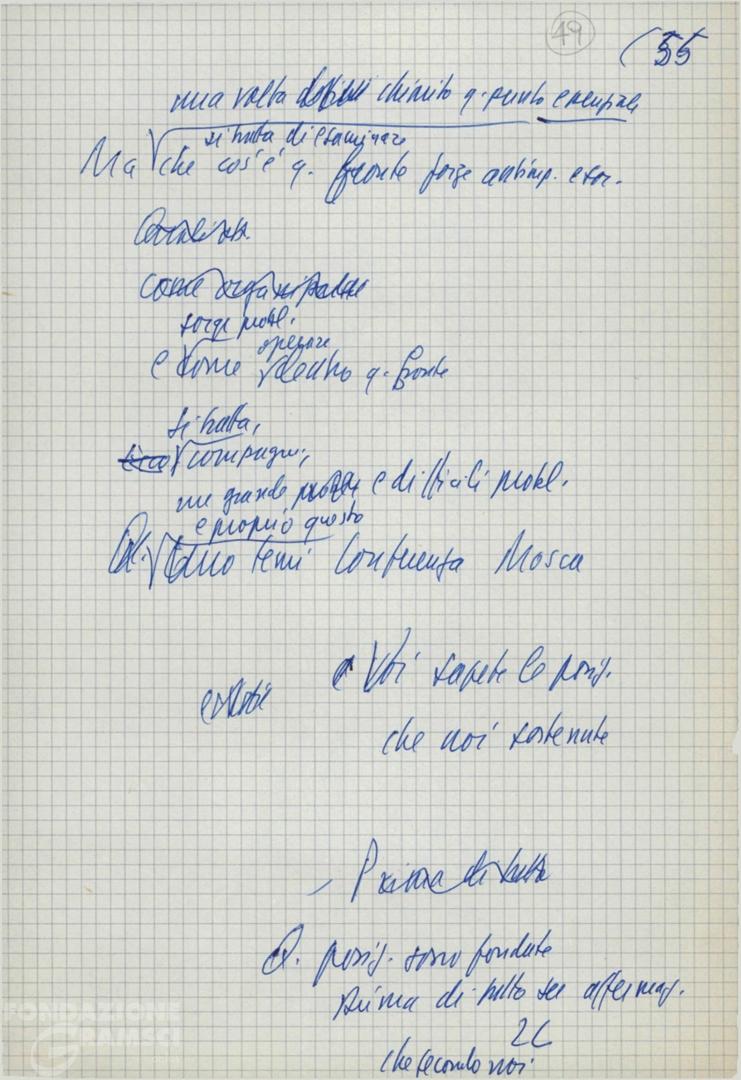 49
55
una volta chiarito q. punto essenziale
si tratta di esaminare
Ma che cos'è q. fronte forze antimp. e
Come organizzazione
sorge probl.
operare
e come dentro q. fronte
si tratta,
compagni,
un grande e difficili probl.
e proprio questo
Q. uno temi Conferenza Mosca
e Voi sapete le posiz.
che noi sostenute
– Prima di tutto
Q. posiz. sono fondate
prima di tutto su affermaz.
che secondo noi
FONDAZIONE
GRAMSCI